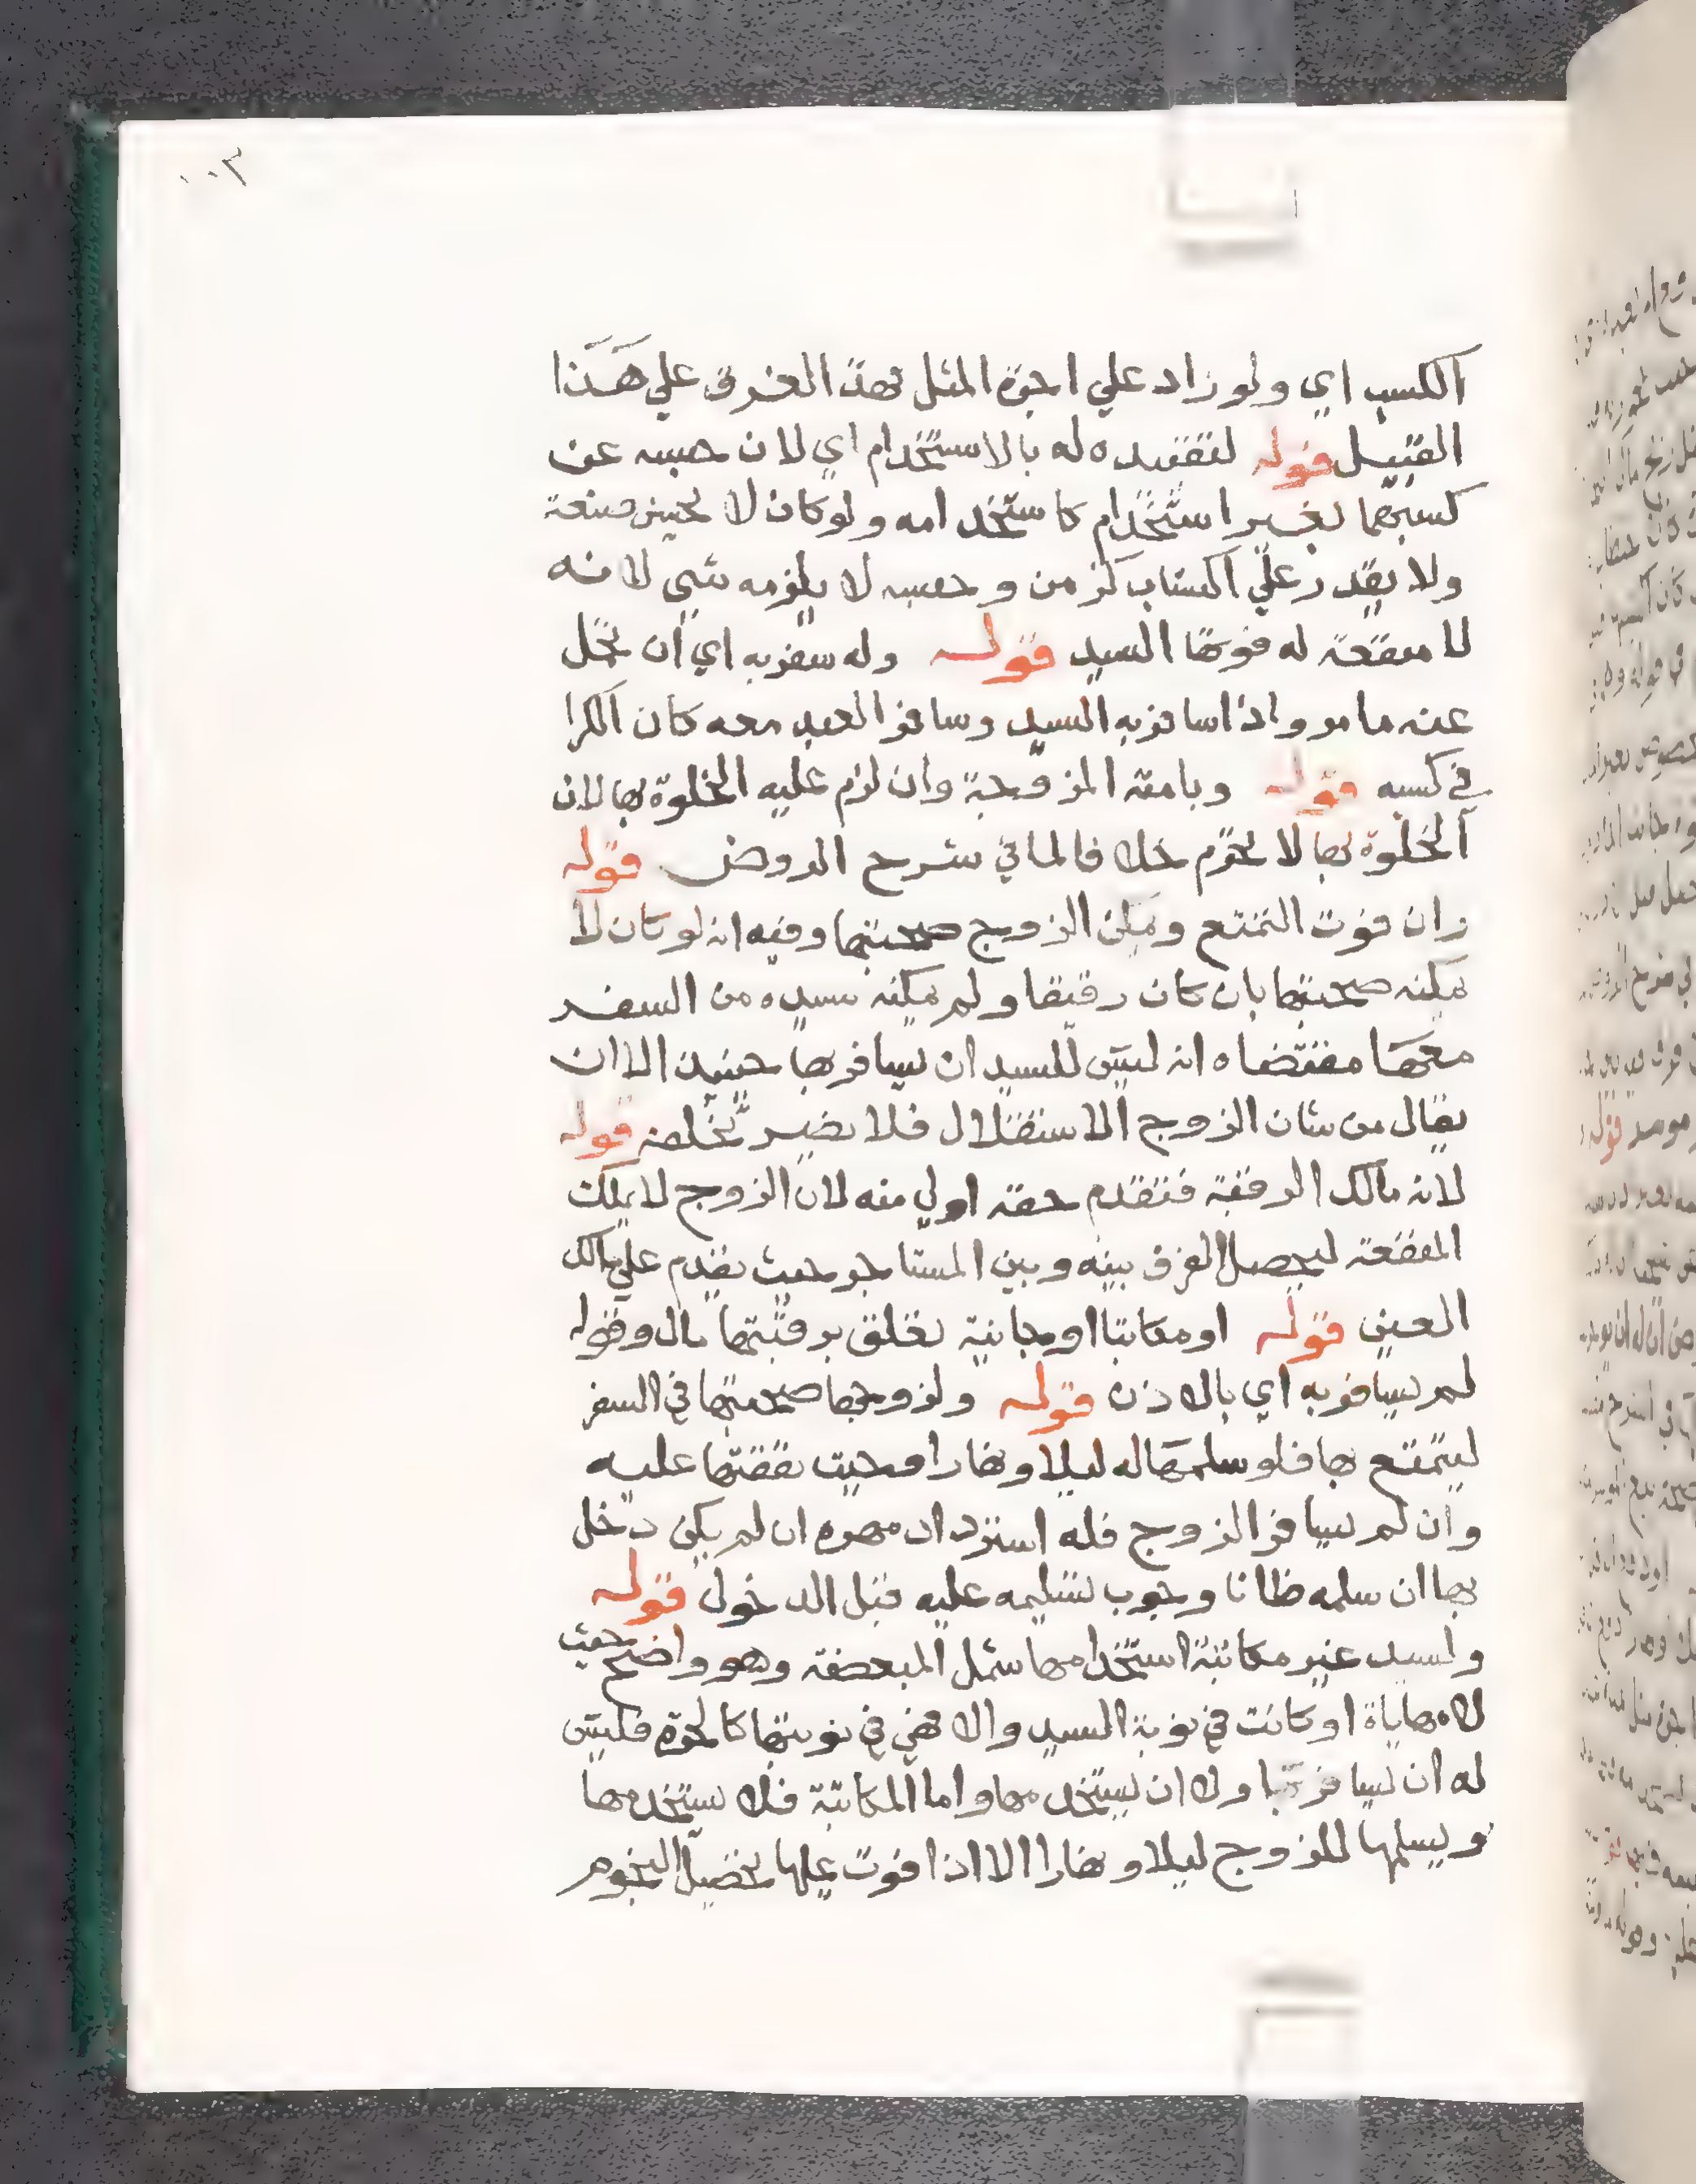 ٢٠٠
الكسب اي ولو زاد علي اجرة المثل بهذ الفرق علي هَذا
القتيل قوله لتفتيده له بالاستخدام اي لان حبسه عن
كسبهما بغير استخدام كاستخدامه ولو كان لا يحسن صنعة
ولا يقدر علي اكتساب كزمن وحبسه لا يلزمه شي لانه
لا منفعة له فوتها السيد قوله وله سفر به اي ان تحمل
عنه ما مر واذا سافر به السيد وسافر العبد معه كان الكرا
في كسبه قوله وبامته المزوجة وان لزم عليه الخلوة بها لان
الخلوة بها لا تحرم خلافا لما في شرح الروض قوله
وان فوت التمتع ويمكن الزوج صحبتها وفيه انه لو كان لا
يمكنه صحبتها بان كان رقيقا ولم يمكنه سيده من السفر
معها مقتضاه انه ليس للسيد ان يسافر بها حينيذ الا ان
يقال من شان الزوج الاستقلال فلا يضير تخلفه قوله
لانه مالك الرقبة فتقدم حقه اولي منه لان الزوج لا يملك
المنفعة ليحصل الفرق بينه وبين المستاجر حيث يقدم علي مالك
العين قوله او مكاتبا او جانية تعلق برقبتها مال وقوله
لم يسافر به اي بالاذن قوله ولزوجها صحبتها في السفر
ليتمتع بها فلو سلمها له ليلا ونهارا وجبت نفقتها عليه
وان لم يسافر الزوج فله استرداد مهره ان لم يكن دخل
بها ان سلمه ظانا وجوب تسليمه عليه قبل الدخول قوله
ولسيد غير مكاتبة استخدامها شمل المبعضة وهو واضح حيث
لا مهاياة او كانت في نوبة السيد والا فهي في نوبتها كالحرة فليس
له ان يسافر بها ولا ان يستخدمها واما المكاتبة فلا يستخدمها
ويسلمها للزوج ليلا ونهارا الا اذا فوت عليها تحصيل النجوم